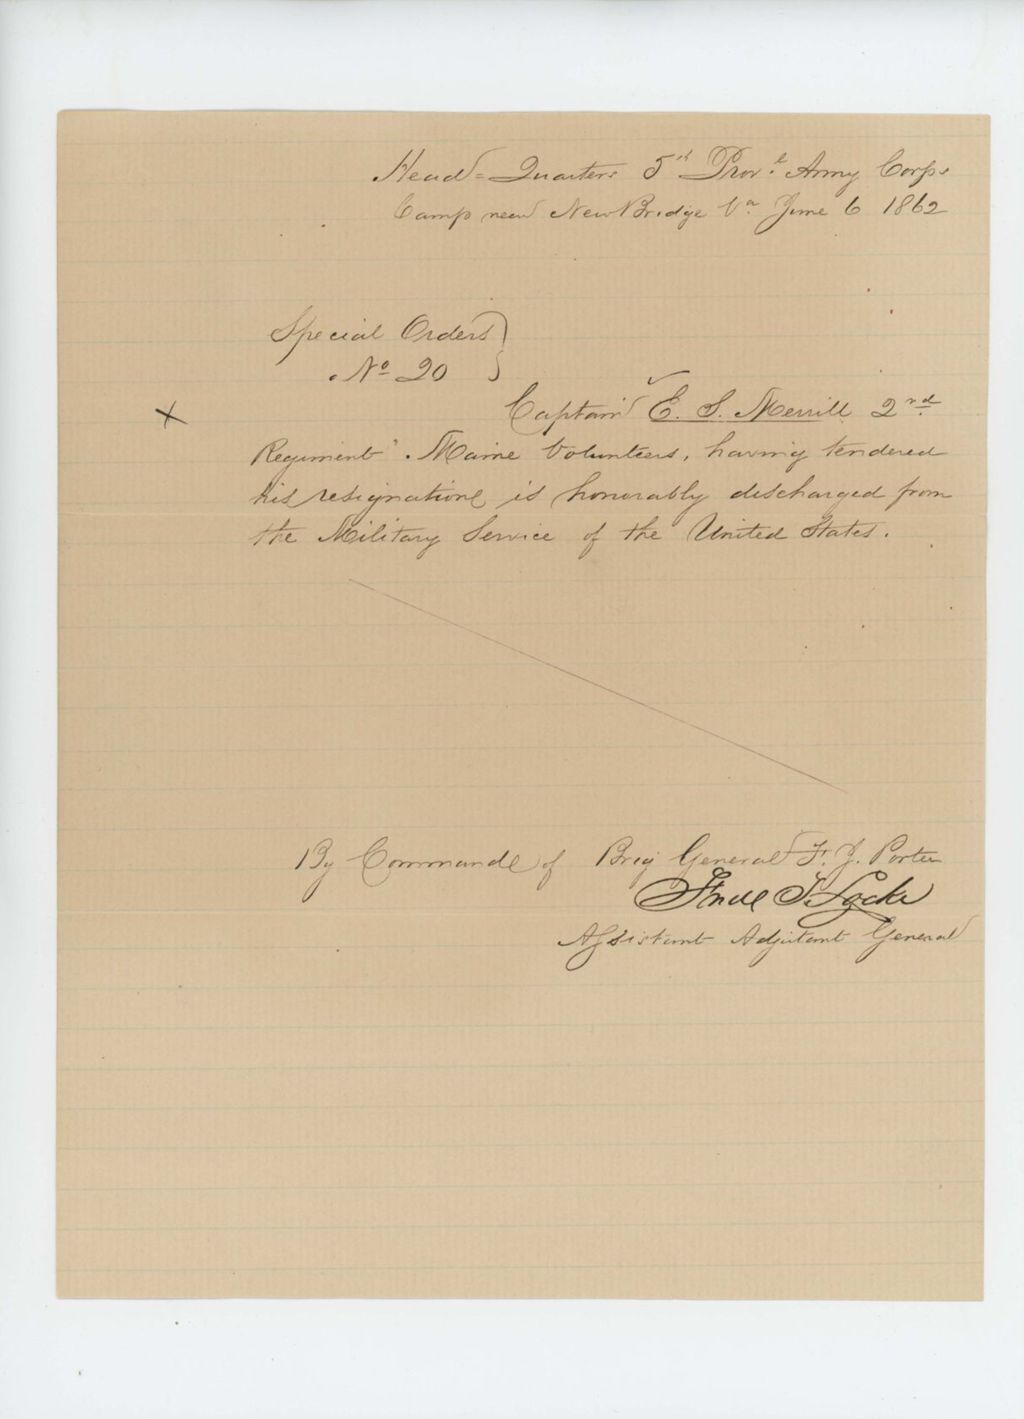 Head=Quarters 5th Provl Army Corps
Camp near New Bridge Va June 6 1862
Special Orders
No 20
Captain E. S. Merrill 2nd
X
Regiment Maine Volunteers, having tendered
his resignation, is honorably discharged from
the Military Service of the United States.
By Command of Brig General F. J. Porter
Fred T. Locke
Assistant Adjutant General